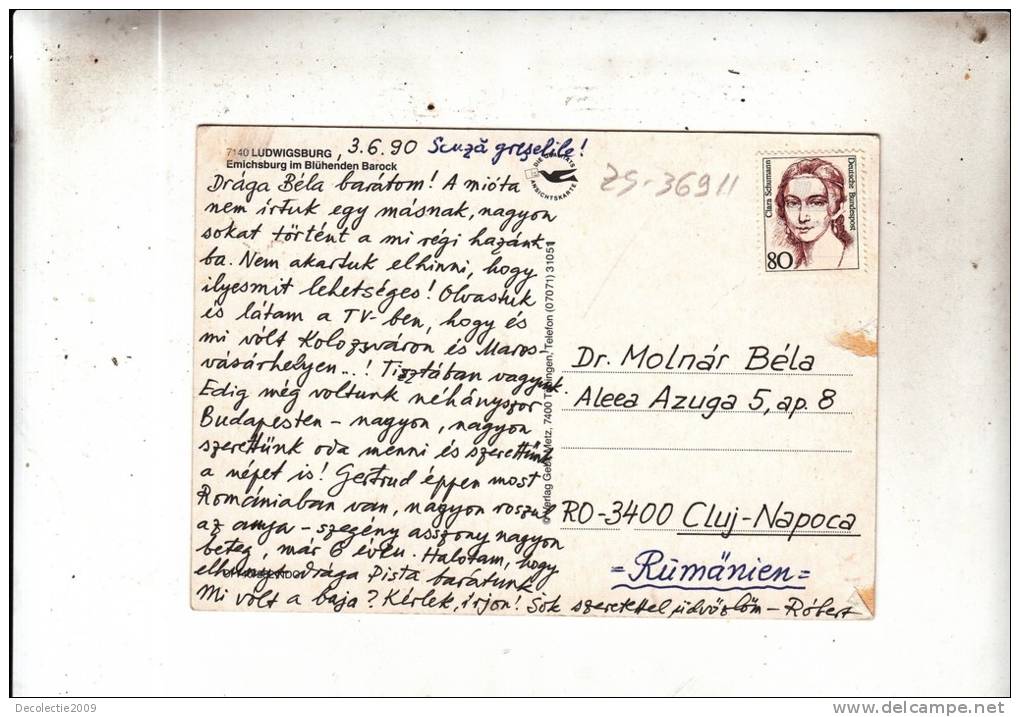 7140 LUDWIGSBURG, 3.6.90 Scuză greșelile!
Emichsburg im Blühenden Barock
Drága Béla barátom! A mióta
nem írtuk egy másnak, nagyon
sokat történt a mi régi hazánk-
ba. Nem akartuk elhinni, hogy
ilyesmit lehetséges! Olvastuk
és látam a TV-ben, hogy és
mi vólt Kolozsváron és Maros-
vásárhelyen...! Tisztában vagyunk.
Edig még voltunk néhányszor
Budapesten - nagyon, nagyon
szerettünk oda menni és szerettünk
a népet is! Gertrud éppen most
Romániaban van, nagyon roszul
az anyja - szegény asszony nagyon
beteg, már 6 éven. Halotam, hogy
elhunyt drága Pista baratunk.
Mi vólt a baja? Kérlek, írjon! Sok szeretettel üdvözlöm - Róbert
DIE QUALITÄTS
ANSICHTSKARTE
ZS-36911
Clara Schumann
Deutsche Bundespost
80
© Verlag Gebr. Metz, 7400 Tübingen, Telefon (07071) 31051
Dr. Molnár Béla
Aleea Azuga 5, ap. 8
RO-3400 Cluj-Napoca
=Rümänien=
Decolectie2009
www.delcampe.net